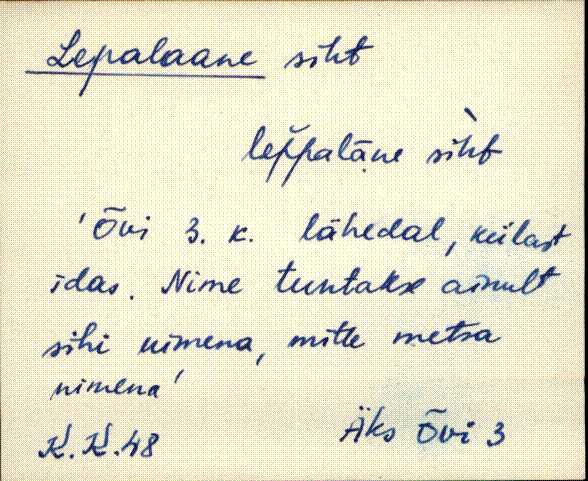 Lepalaane siht
lep̆palāne sìht
'Õvi 3. k. lähedal, külast
idas. Nime tuntakse ainult
sihi nimena, mitte metsa
nimena'
K. K. 48 Äks Õvi 3